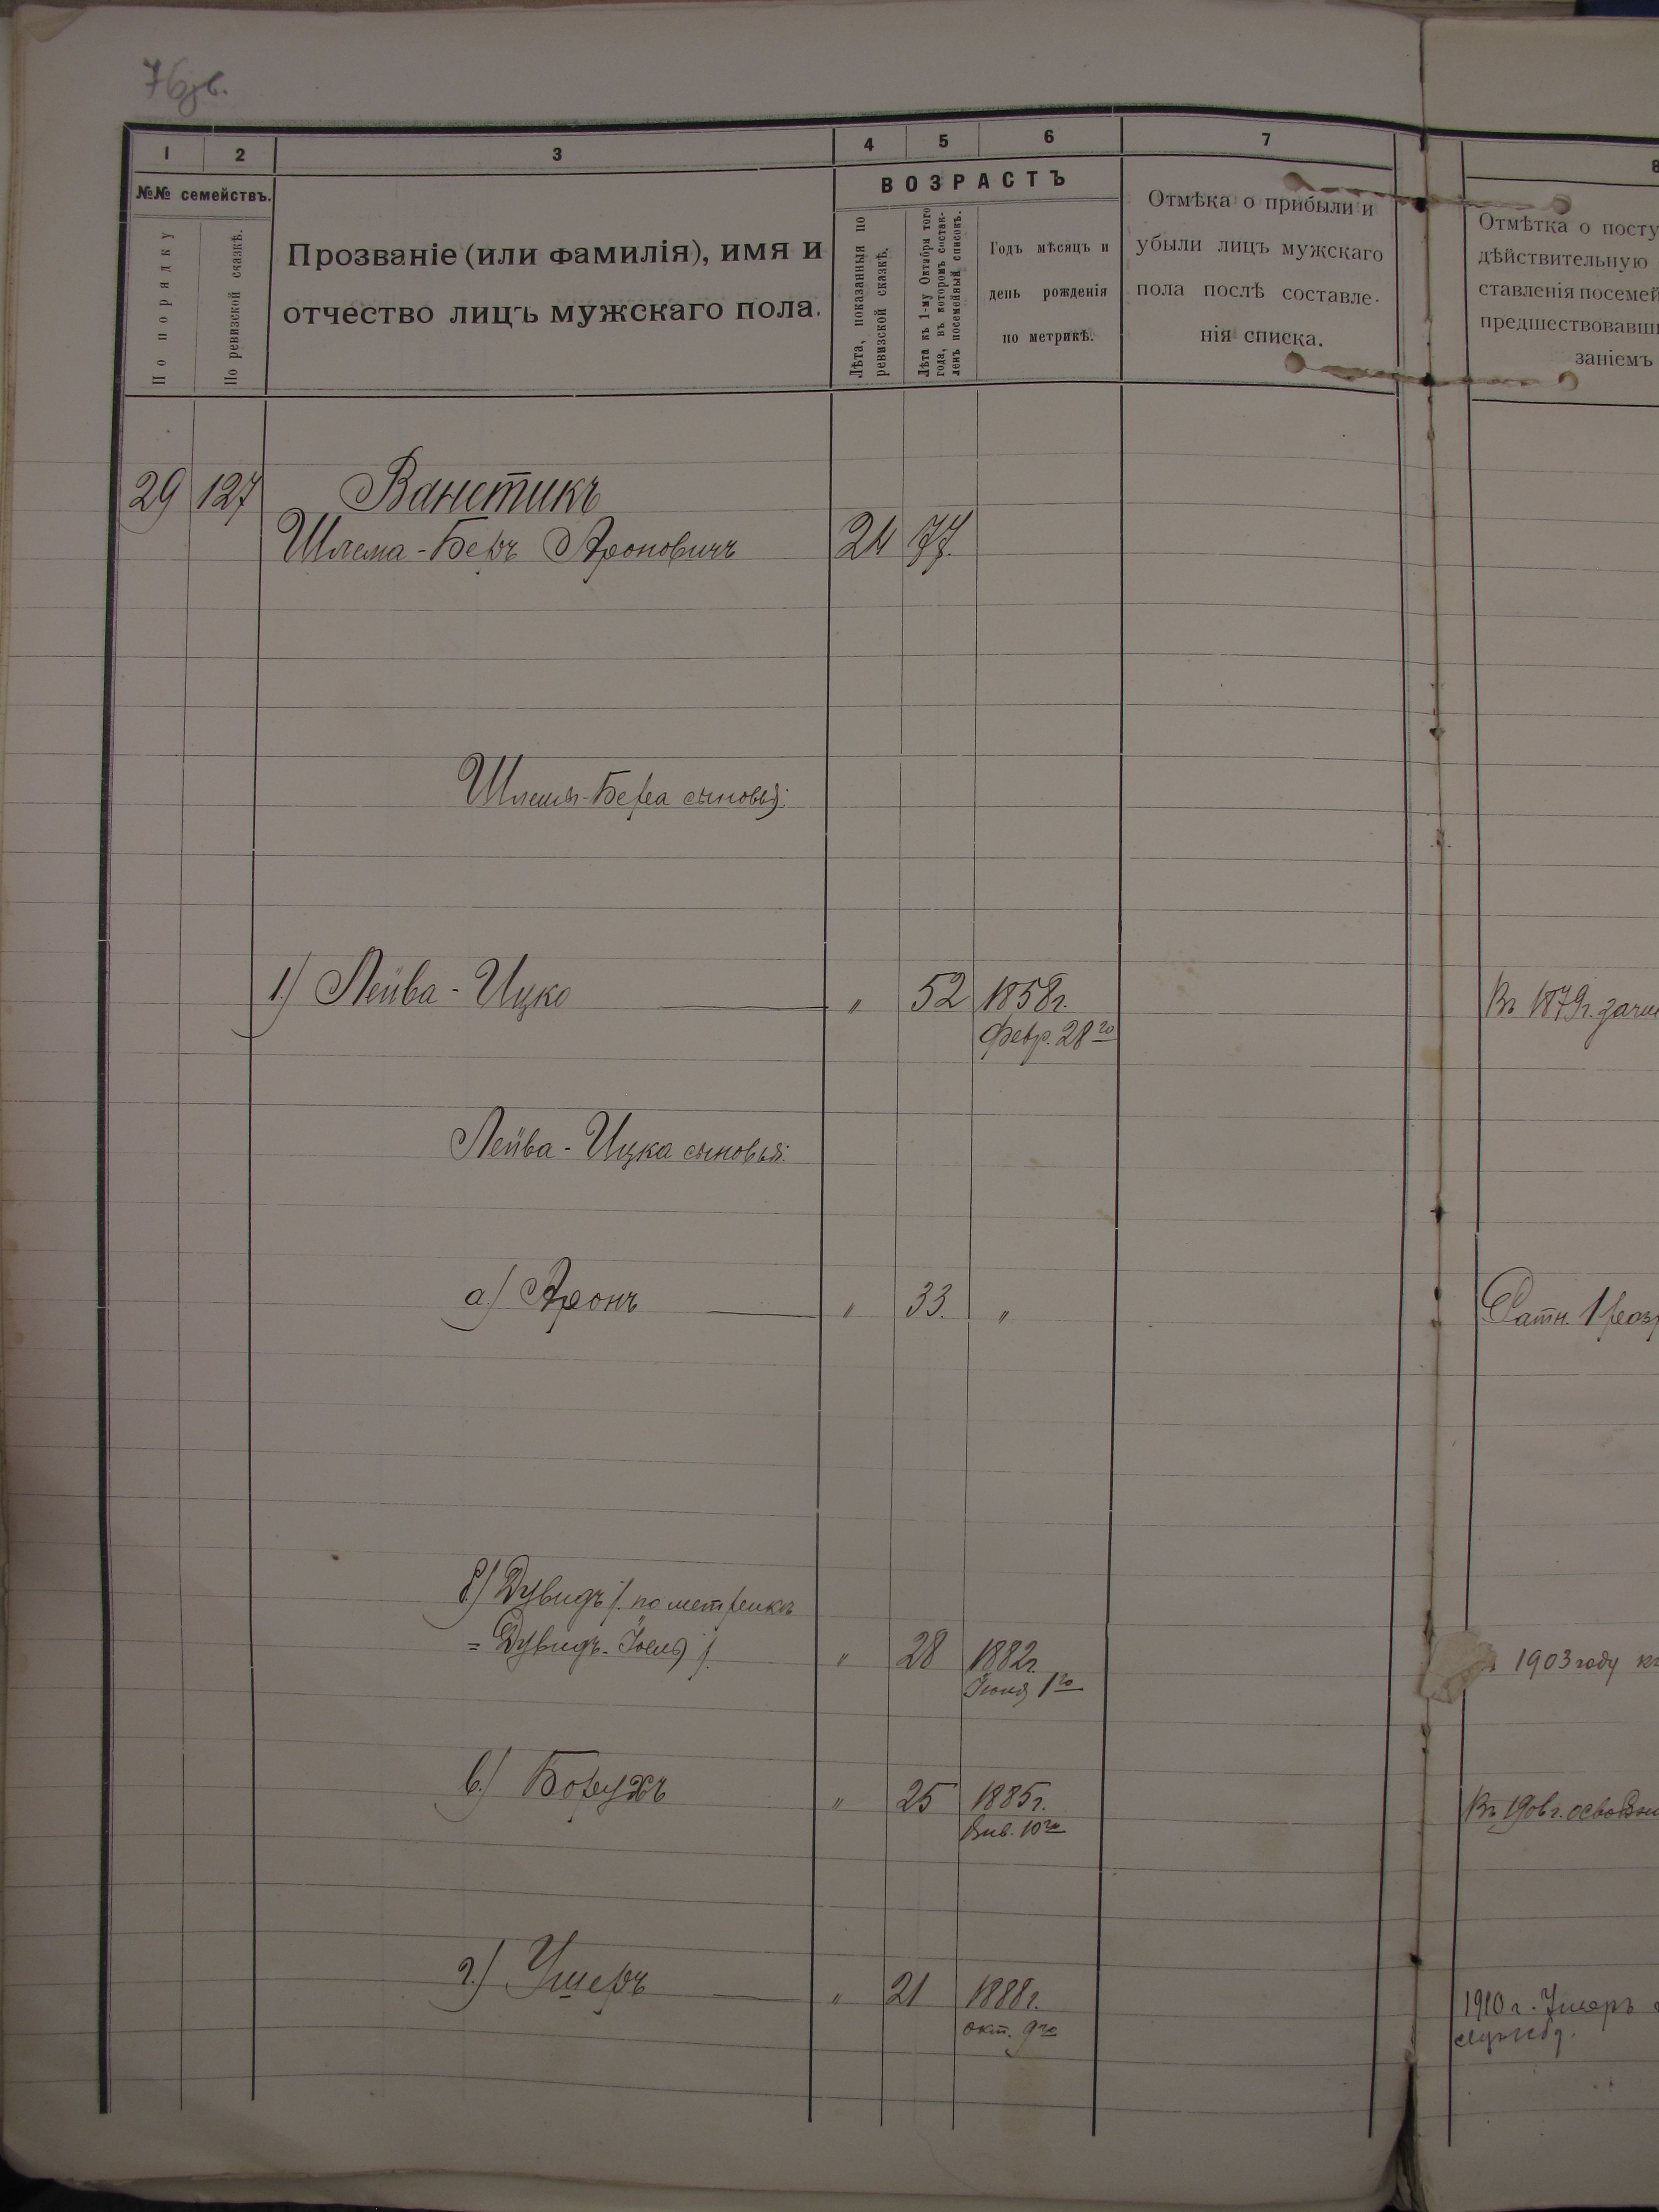 76об.
1 2 3 4 5 6 7 8
№№ семействъ.
По порядку
По ревизской сказкѣ.
Прозваніе (или фамилія), имя и
отчество лицъ мужскаго пола.
ВОЗРАСТЪ
Лѣта, показанныя по
ревизской сказкѣ.
Лѣта къ 1-му Октября того
года, въ которомъ состав-
ленъ посемейный списокъ.
Годъ мѣсяцъ и
день рожденія
по метрикѣ.
Отмѣка о прибыли и
убыли лицъ мужскаго
пола послѣ составле-
нія списка.
Отмѣтка о посту
дѣйствительную
ставленія посемей
предшествовавши
заніемъ
29 127 Ванетикъ
Шлема-Беръ Ароновичъ 24 77.
Шлемы-Бера сыновья:
1.) Лейва-Ицко " 52 1858г.
февр. 28го
Въ 1879г. зачи
Лейва-Ицка сыновья:
а.) Аронъ " 33. "
Ратн. 1 разр
б.) Дувидъ /. по метрикѣ
= Дувидъ-Іоель ./ " 28 1882г.
Іюня 1го
1903 году къ
в.) Борухъ " 25 1885г.
Янв. 10го
Въ 1906г. освобож
г.) Ушеръ " 21 1888г.
окт. 9го
1910 г. Ушеръ
службу.